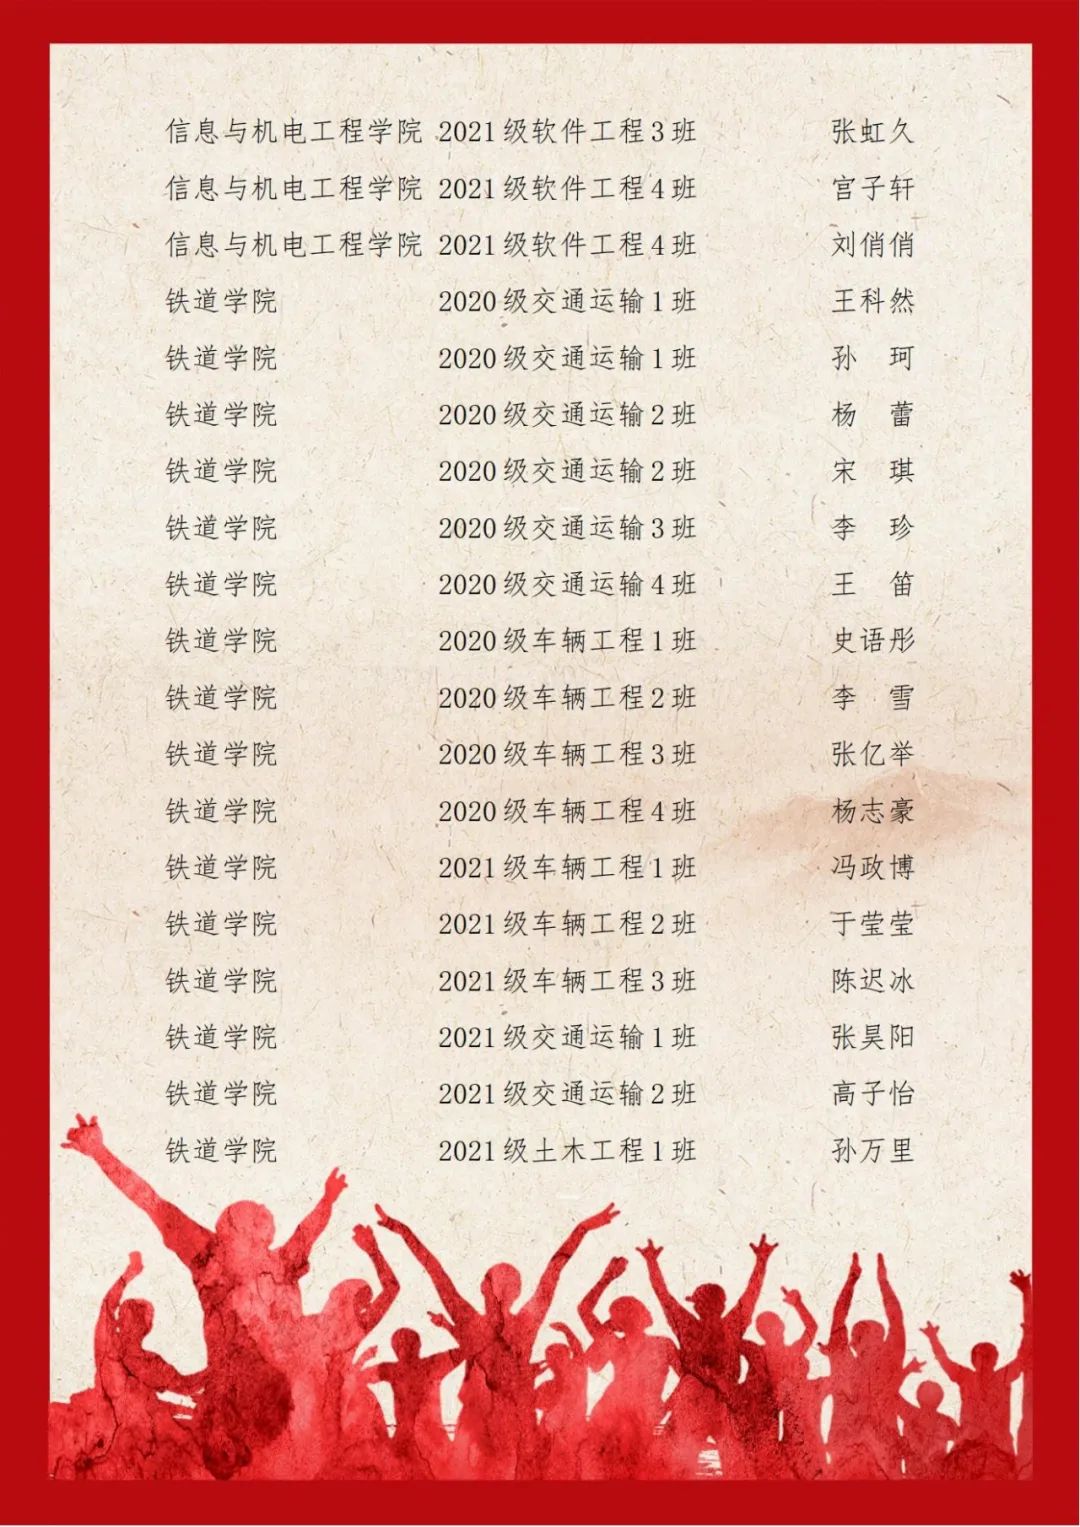 信息与机电工程学院 2021级软件工程3班 张虹久
信息与机电工程学院 2021级软件工程4班 宫子轩
信息与机电工程学院 2021级软件工程4班 刘俏俏
铁道学院 2020级交通运输1班 王科然
铁道学院 2020级交通运输1班 孙 珂
铁道学院 2020级交通运输2班 杨 蕾
铁道学院 2020级交通运输2班 宋 琪
铁道学院 2020级交通运输3班 李 珍
铁道学院 2020级交通运输4班 王 笛
铁道学院 2020级车辆工程1班 史语彤
铁道学院 2020级车辆工程2班 李 雪
铁道学院 2020级车辆工程3班 张亿举
铁道学院 2020级车辆工程4班 杨志豪
铁道学院 2021级车辆工程1班 冯政博
铁道学院 2021级车辆工程2班 于莹莹
铁道学院 2021级车辆工程3班 陈迟冰
铁道学院 2021级交通运输1班 张昊阳
铁道学院 2021级交通运输2班 高子怡
铁道学院 2021级土木工程1班 孙万里